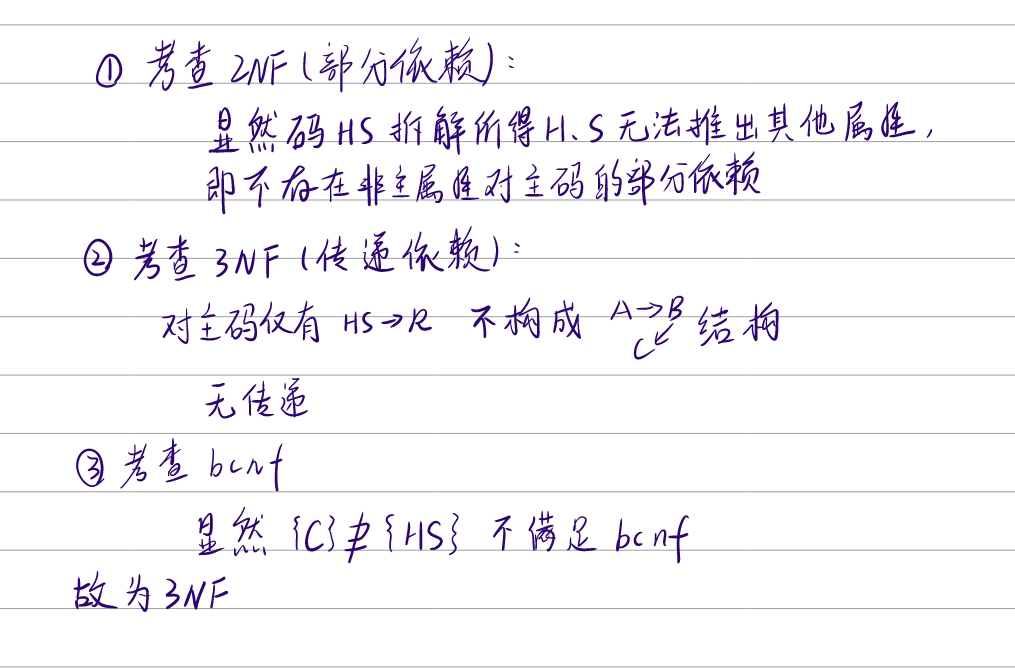 ① 考查 2NF (部分依赖):
显然码 HS 拆解所得 H、S 无法推出其他属性,
即不存在非主属性对主码的部分依赖
② 考查 3NF (传递依赖):
对主码仅有 HS→R 不构成 A→B 结构
C↙
无传递
③ 考查 bcnf
显然 {C}⊉{HS} 不满足 bcnf
故为 3NF